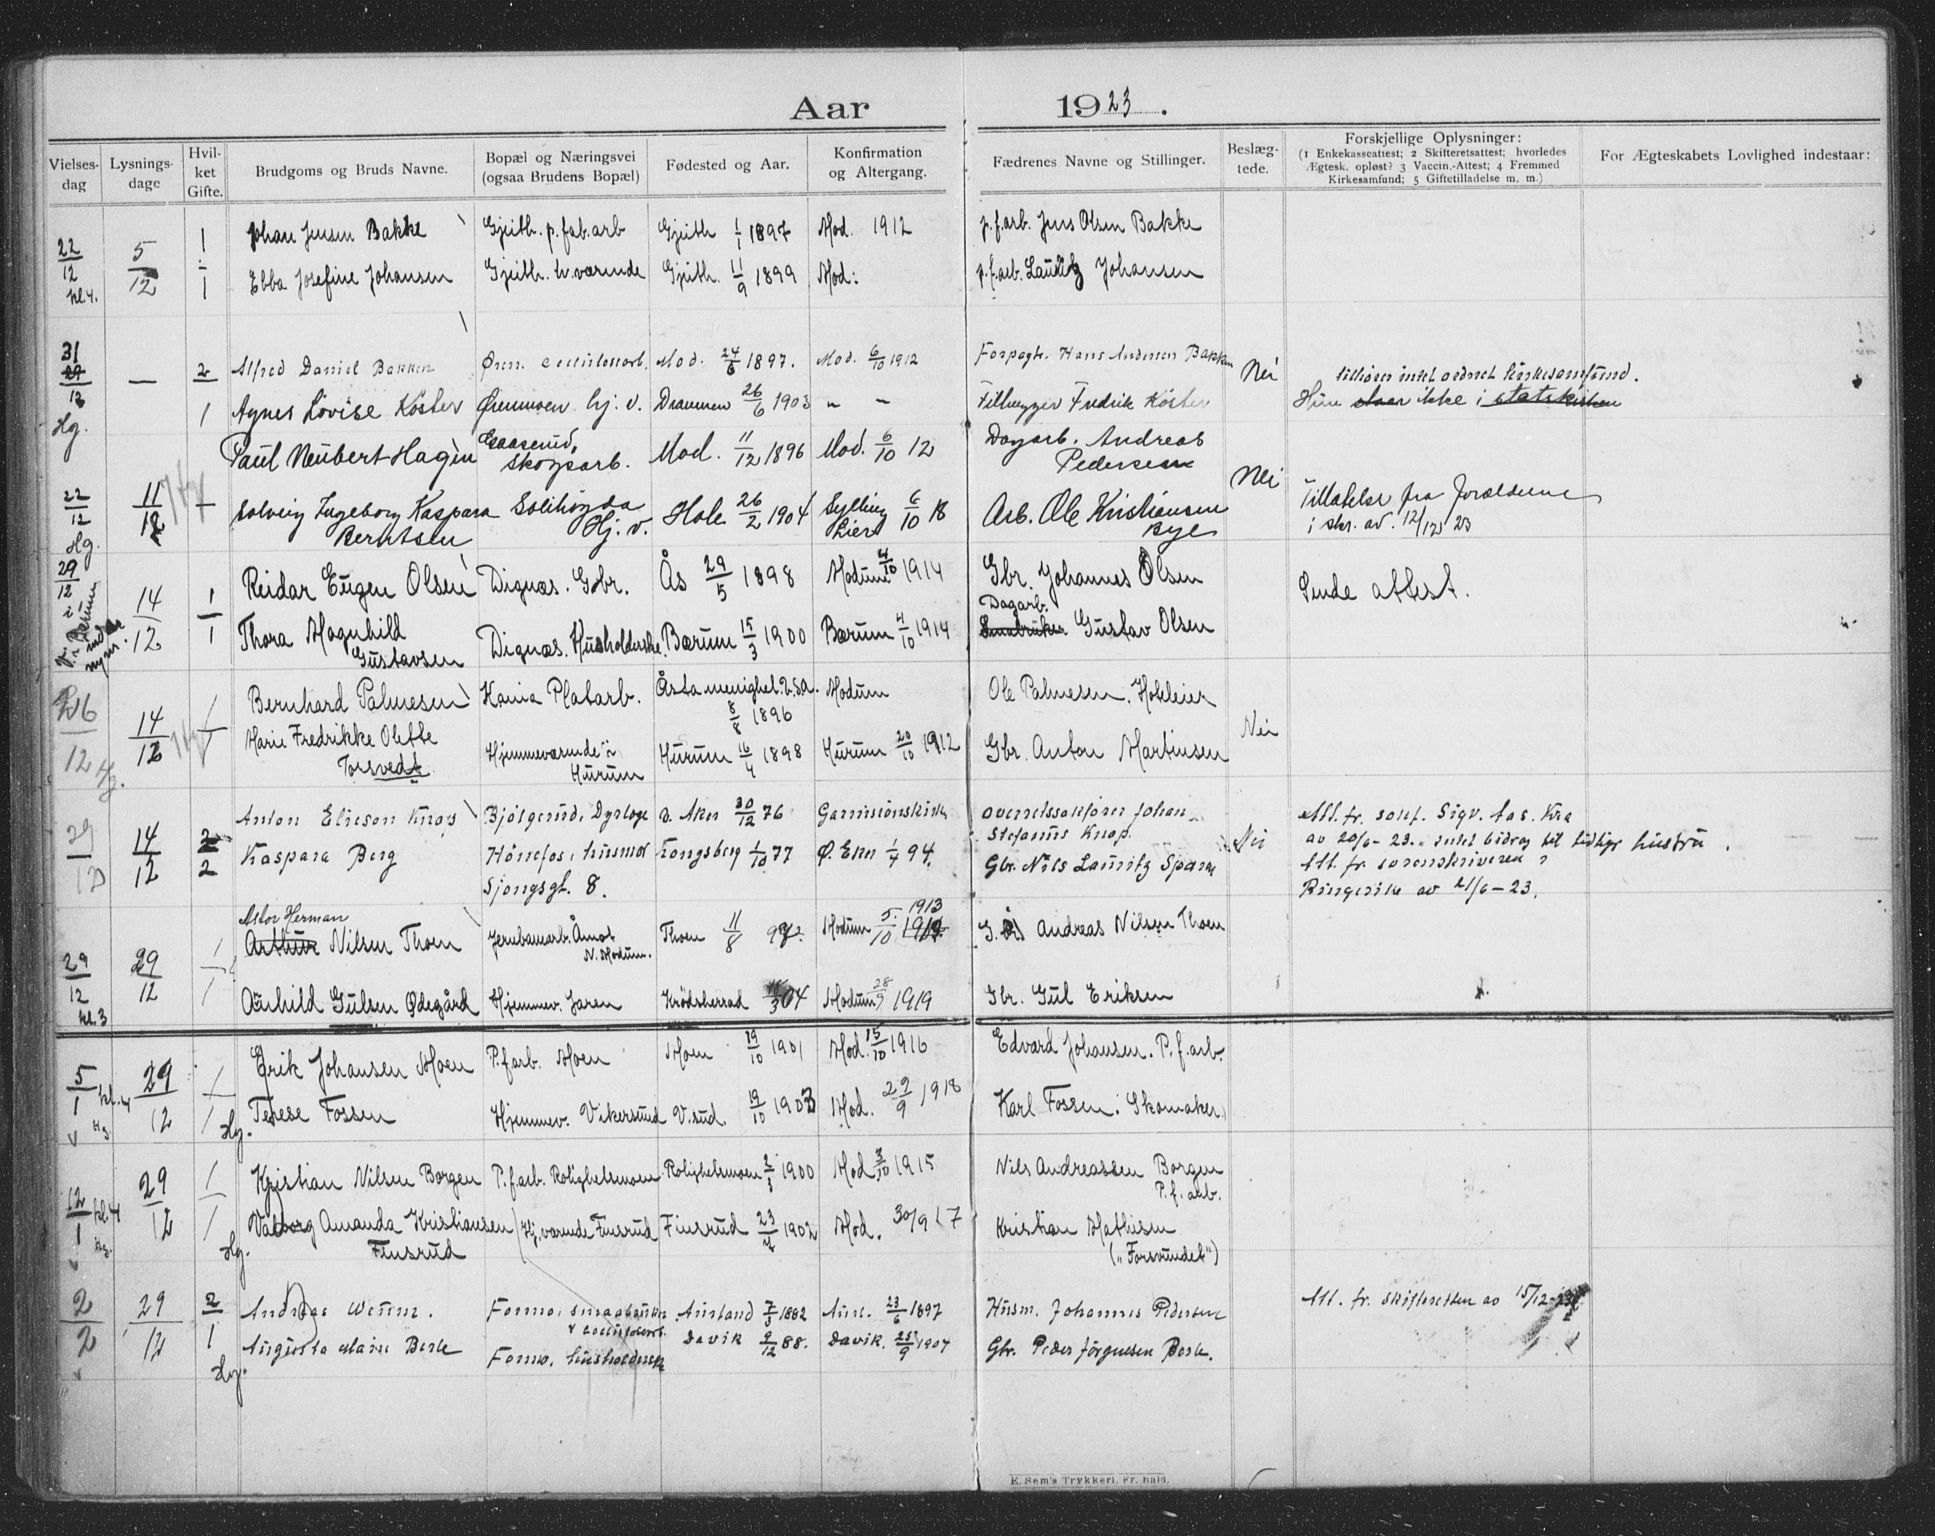 Aar 1923.
Vielses-dag
Lysnings-dage
Hvil-ket Gifte.
Brudgoms og Bruds Navne.
Bopæl og Næringsvei (ogsaa Brudens Bopæl)
Fødested og Aar.
Konfirmation og Altergang.
Fædrenes Navne og Stillinger.
Beslæg-tede.
Forskjellige Oplysninger:
(1 Enkekasseattest; 2 Skifteretsattest; hvorledes
Ægtesk. opløst? 3 Vaccin.-Attest; 4 Fremmed
Kirkesamfund; 5 Giftetilladelse m. m.)
For Ægteskabets Lovlighed indestaar:
22/12 kl. 4. 5/12 1 Johan Jensen Bakke Gjeith. p. fab. arb Gjeith 1/1 1897 Mod. 1912 p. f. arb. Jens Olsen Bakke
1 Ebba Josefine Johansen Gjeith. hv. værende Gjeith. 11/9 1899 Mod: p. f. arb. Lauritz Johansen
31/12 Hg. — 2 Alfred Daniel Bakken Øren. Mod. 24/6 1897. Mod. 6/10 1912 Forpagt. Hans Andersen Bakken Nei tilhører intet ordnet kirkesamfund.
1 Agnes Lovise Köster Ørenmoen hj. v. Drammen 26/6 1903 " — Filhugger Fredrik Köster Hun staar ikke i statskirken
22/12 Hg. 11/12 Paul Neubert Hagen Gaaserud, Skogsarb. Mod. 11/12 1896 Mod. 6/10 12 Dagarb. Andreas Pedersen Nei
Solveig Ingeborg Kaspara Berntsen Solihøgda Hj. v. Hole 26/2 1904 Sylling Lier 6/10 18 Arb. Ole Kristiansen Bye Tillatelse fra forældrene
i skr. av. 12/12 23
29/12 i Bærum 14/12 1 Reidar Eugen Olsen Dignæs. Gbr. Ås 29/5 1898 Modum 4/10 1914 Gbr. Johannes Olsen Sende attest.
1 Thora Magnhild Gustavsen Dignæs. Husholderske. Bærum 15/3 1900 Bærum 4/10 1914 Dagarb. Smabruker Gustav Olsen
26/12 Hg. 14/12 1 Bernhard Palmesen Kania Platarb. Åsta menighet. U.S.A. 8/8 1896 Modum Ole Palmesen. Hoteleier
1 Marie Fredrikke Olette Torsvedt Hjemmeværende i Hurum Hurum 16/4 1898 Hurum 20/10 1912 Gbr. Anton Martinsen Nei
29/12 14/12 2 Anton Elieson Knap Bjølgerud, Dyrlæge v. Aker 30/12 76 Garnisonskirken overretssakfører Johan Stefanus Knap. Att. fr. sokf. Sigv. Aas. Kra
2 Kaspara Berg Hönefos, husmor Sjongsgt. 8. Kongsberg 1/10 77 Ø. Eker 1/7 94. Gbr. Nils Lauritz Sparre Nei av 20/6 - 23. intet bidrag til tidligr hustru.
Att. fr. sorenskriveren i
Ringerike av 21/6 - 23.
29/12 kl. 3 29/12 1 Astor Herman Arthur Nilsen Thoen Jernbanearb. Åmot N. Modum. Thoen 11/8 Modum 5/10 1913 Andreas Nilsen Thoen
1 Aashild Gulsen Ødegård Hjemmev. Jaren Krödsherred 04 Modum 28/9 1919 Gbr. Gul Eriksen
5/1 kl. 4 Hg. 29/12 1 Erik Johansen Moen P. f. arb. Moen Moen 19/10 1901 Mod. 15/10 1916 Edvard Johansen. P. f. arb.
1 Hg. Terese Fossen Hjemmev. Vikersund V. sud. 19/10 1903 Mod. 29/9 1918 Karl Fossen. Skomaker.
12/1 kl. 4 Hg. 29/12 1 Kristian Nilsen Borgen P. f. arb. Rolighetsmoen Rolighetsmoen 1900 Mod. 3/10 1915 Nils Andreassen Borgen P. f. arb.
1 Hg. Valborg Amanda Kristiansen Finsrud Hj. værende Finsrud Finsrud 23/4 1902 Mod. 30/9 17 Kristian Mathisen ("Forsvundet")
2/2 29/12 2 Andreas Weum. Formo, smaabruker Aurland 7/5 1882 Aurl. 23/6 1897 Husm. Johannes Pedersen Att. fr. skifteretten av 15/12-23
1 Hg. Augusta Marie Berle Formo, husholderske Davik 9/12 88. Davik. 25/9 1904 Gbr. Peder Jörgensen Berle.
E. Sem's Trykkeri, Fr.hald.